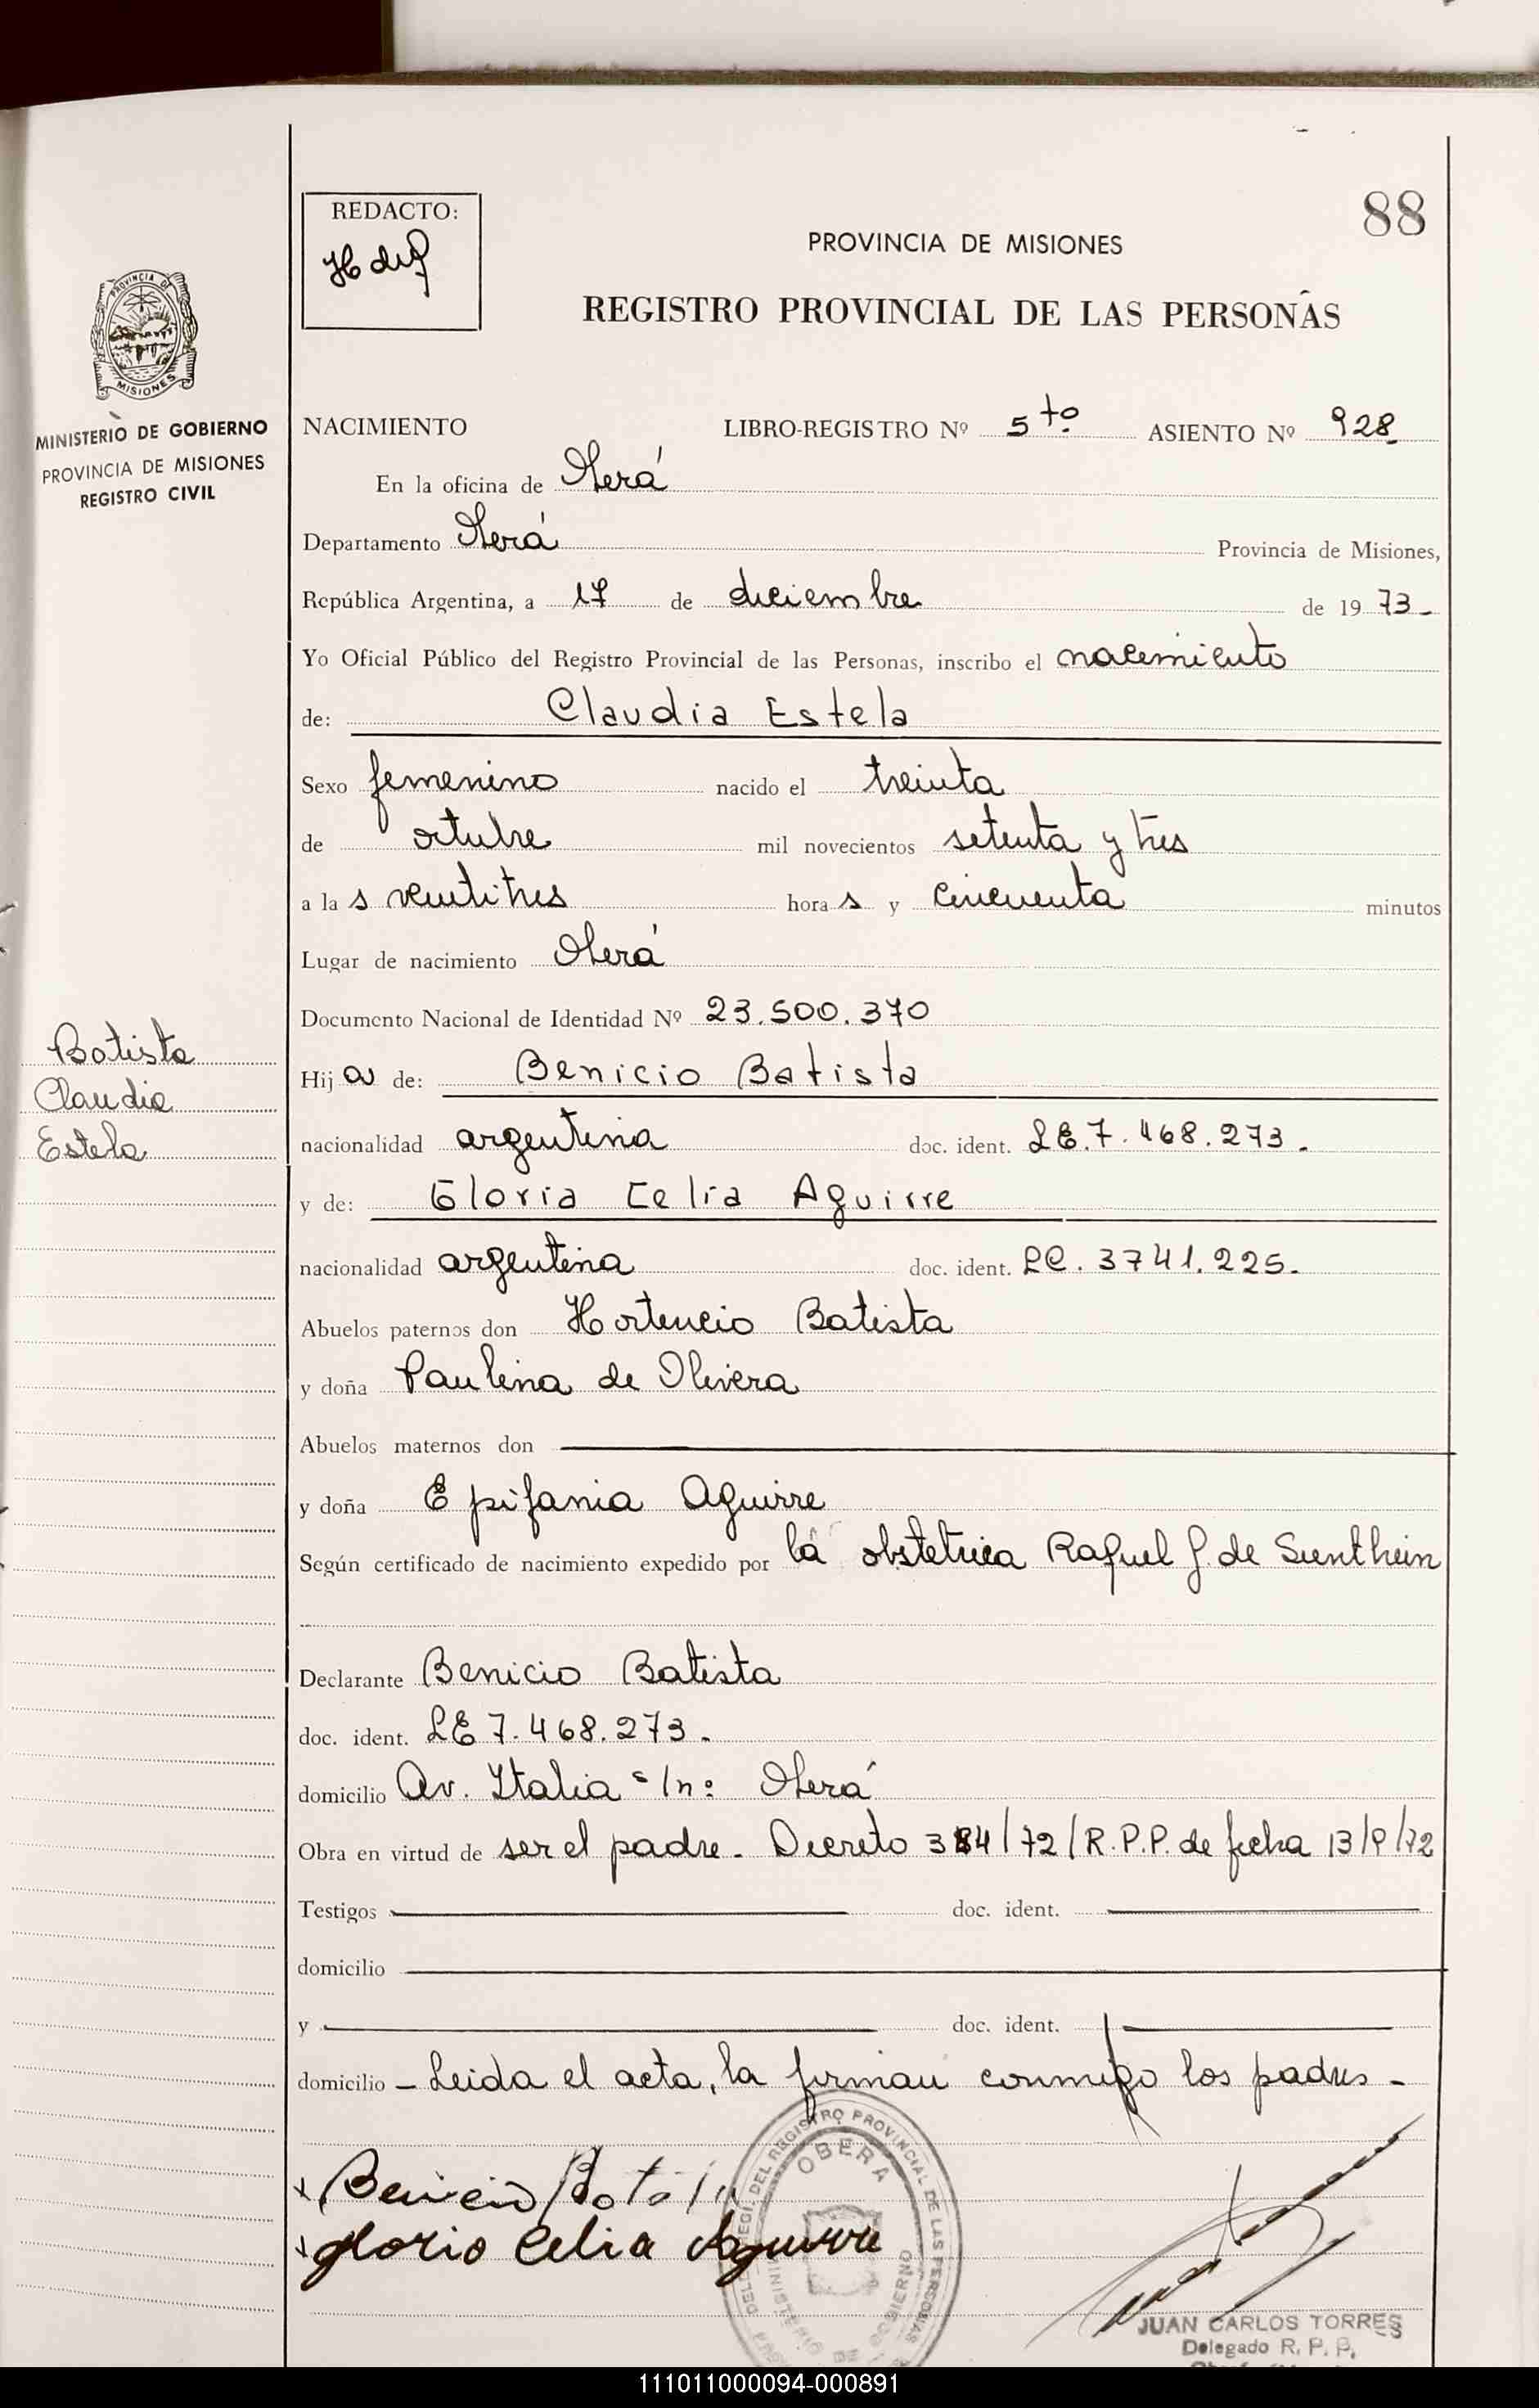 88
REDACTO:
PROVINCIA DE MISIONES
REGISTRO PROVINCIAL DE LAS PERSONAS
PROVINCIA DE
MISIONES
MINISTERIO DE GOBIERNO
PROVINCIA DE MISIONES
REGISTRO CIVIL
NACIMIENTO LIBRO-REGISTRO Nº 5to. ASIENTO Nº 928
En la oficina de Oberá
Departamento Oberá Provincia de Misiones,
República Argentina, a 17 de diciembre de 1973-
Yo Oficial Público del Registro Provincial de las Personas, inscribo el nacimiento
de: Claudia Estela
Sexo femenino nacido el treinta
de octubre mil novecientos setenta y tres
a la s veintitres hora s y cincuenta minutos
Lugar de nacimiento Oberá
Documento Nacional de Identidad Nº 23.500.370
Batista
Claudia
Estela
Hij a de: Benicio Batista
nacionalidad argentina doc. ident. LE.7.468.273.
y de: Gloria Celia Aguirre
nacionalidad argentina doc. ident. LC. 3741.225.
Abuelos paternos don Hortencio Batista
y doña Paulina de Olivera
Abuelos maternos don
y doña Epifania Aguirre
Según certificado de nacimiento expedido por la obstetrica Raquel J. de Sunthein
Declarante Benicio Batista
doc. ident. LE 7.468.273.
domicilio Av. Italia s/nº Oberá
Obra en virtud de ser el padre. Decreto 384/72/R.P.P. de fecha 13/9/72
Testigos doc. ident.
domicilio
y doc. ident.
domicilio - Leida el acta, la firman conmigo los padres -
Benicio Batista
Gloria Celia Aguirre
OBERA
JUAN CARLOS TORRES
Delegado R. P. P.
111011000094-000891